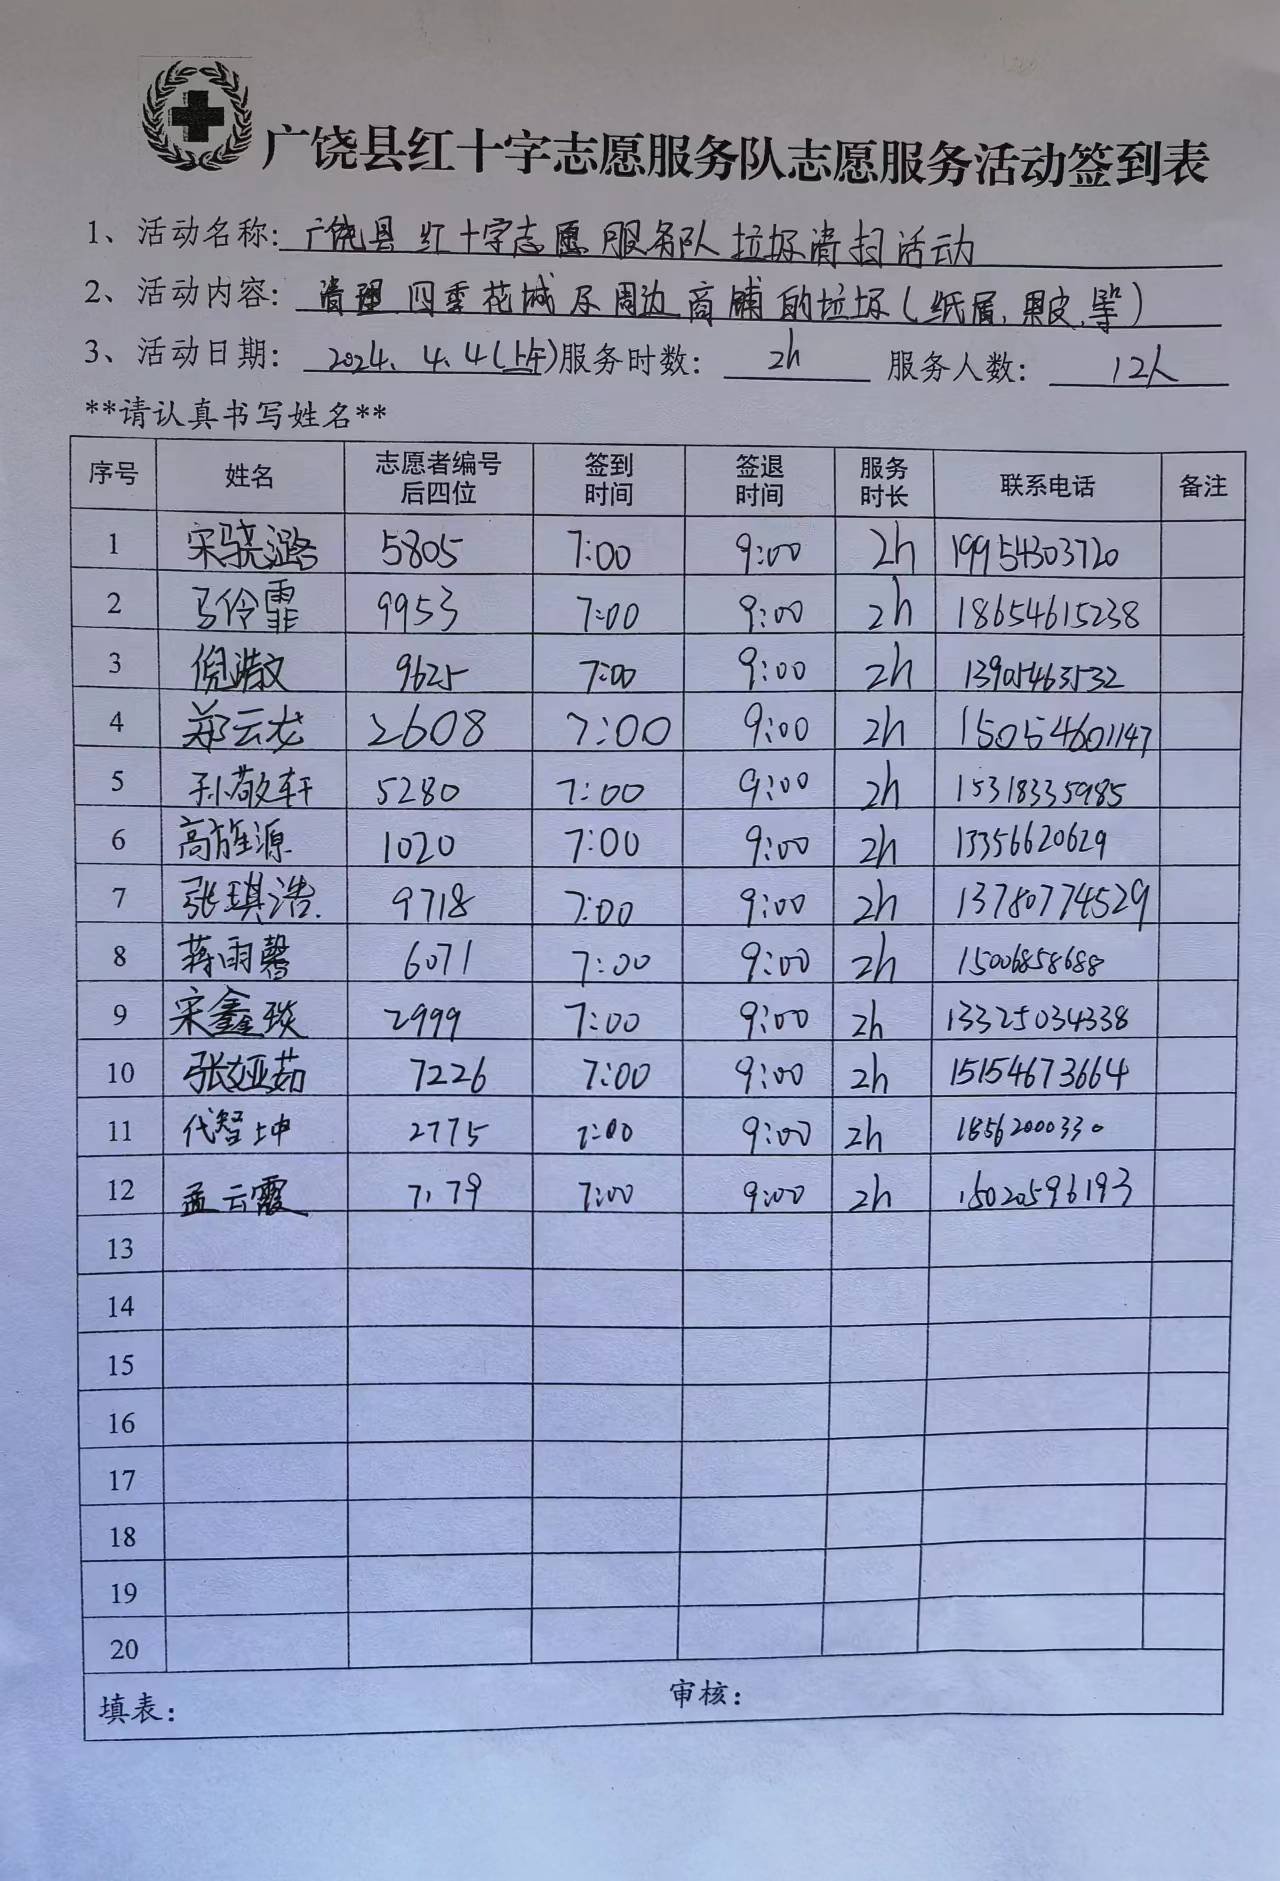 广饶县红十字志愿服务队志愿服务活动签到表
1、活动名称: 广饶县红十字志愿服务队垃圾清扫活动
2、活动内容: 清理四季花城及周边商铺的垃圾(纸屑、果皮、等)
3、活动日期: 2024.4.4(上午) 服务时数: 2h 服务人数: 12人
**请认真书写姓名**
序号 姓名 志愿者编号后四位 签到时间 签退时间 服务时长 联系电话 备注
1 宋骁潞 5805 7:00 9:00 2h 19954303720
2 马伶霏 9953 7:00 9:00 2h 18654615238
3 倪浩文 9625 7:00 9:00 2h 13905463532
4 郑云龙 2608 7:00 9:00 2h 15054601147
5 孙敬轩 5280 7:00 9:00 2h 15318335985
6 高旌源 1020 7:00 9:00 2h 13356620629
7 张琪浩 9718 7:00 9:00 2h 13780774529
8 蒋雨馨 6071 7:00 9:00 2h 15006858688
9 宋鑫琰 2999 7:00 9:00 2h 13325034338
10 张娅茹 7226 7:00 9:00 2h 15154673664
11 代智坤 2775 7:00 9:00 2h 18562000330
12 孟云霞 7179 7:00 9:00 2h 15020596193
13
14
15
16
17
18
19
20
填表: 审核: